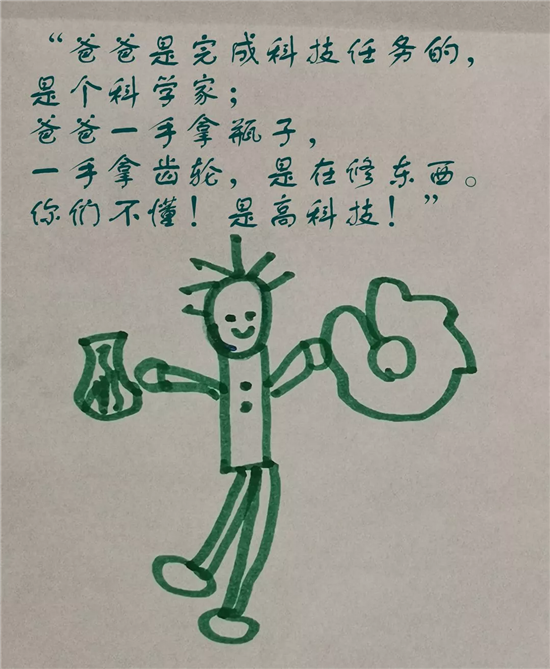 “爸爸是完成科技任务的，
是个科学家；
爸爸一手拿瓶子，
一手拿齿轮，是在修东西。
你们不懂！是高科技！”